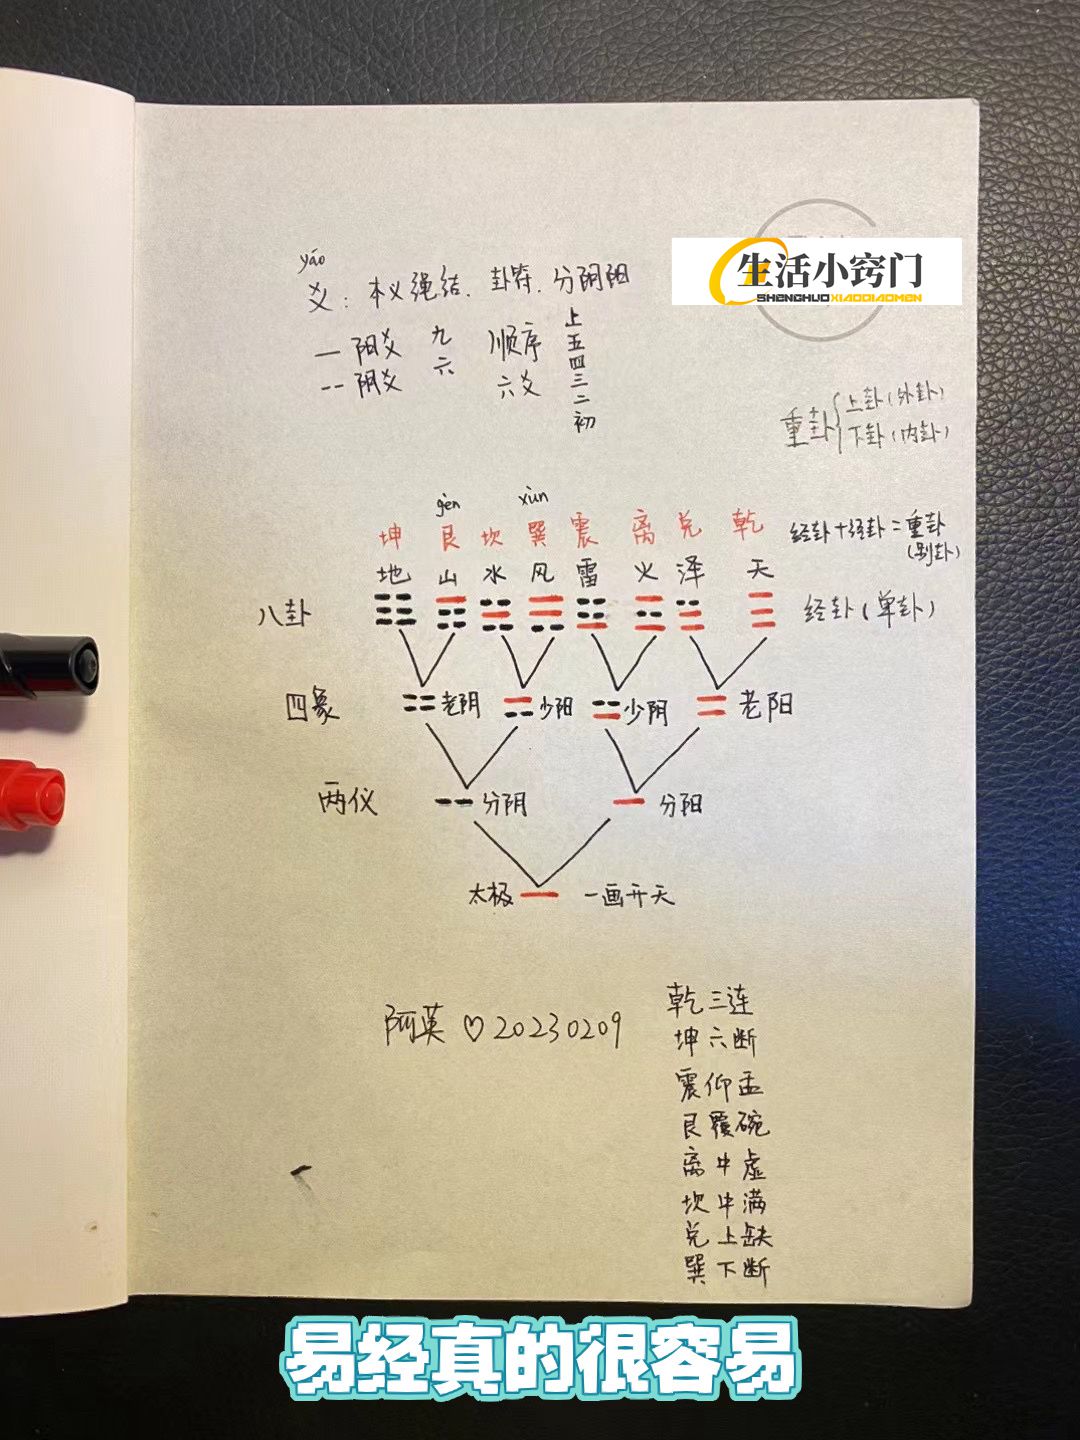 生活小窍门
SHENGHUOXIAOQIAOMEN
yáo
爻：本义绳结、卦符、分阴阳
— 阳爻 九
-- 阴爻 六
顺序
六爻
上
五
四
三
二
初
重卦{上卦(外卦)
下卦(内卦)
gèn xùn
坤 艮 坎 巽 震 离 兑 乾
经卦+经卦=重卦
(别卦)
地 山 水 风 雷 火 泽 天
八卦
经卦(单卦)
四象 老阴 少阳 少阴 老阳
两仪 分阴 分阳
太极 一画开天
阿英♡20230209
乾三连
坤六断
震仰盂
艮覆碗
离中虚
坎中满
兑上缺
巽下断
易经真的很容易